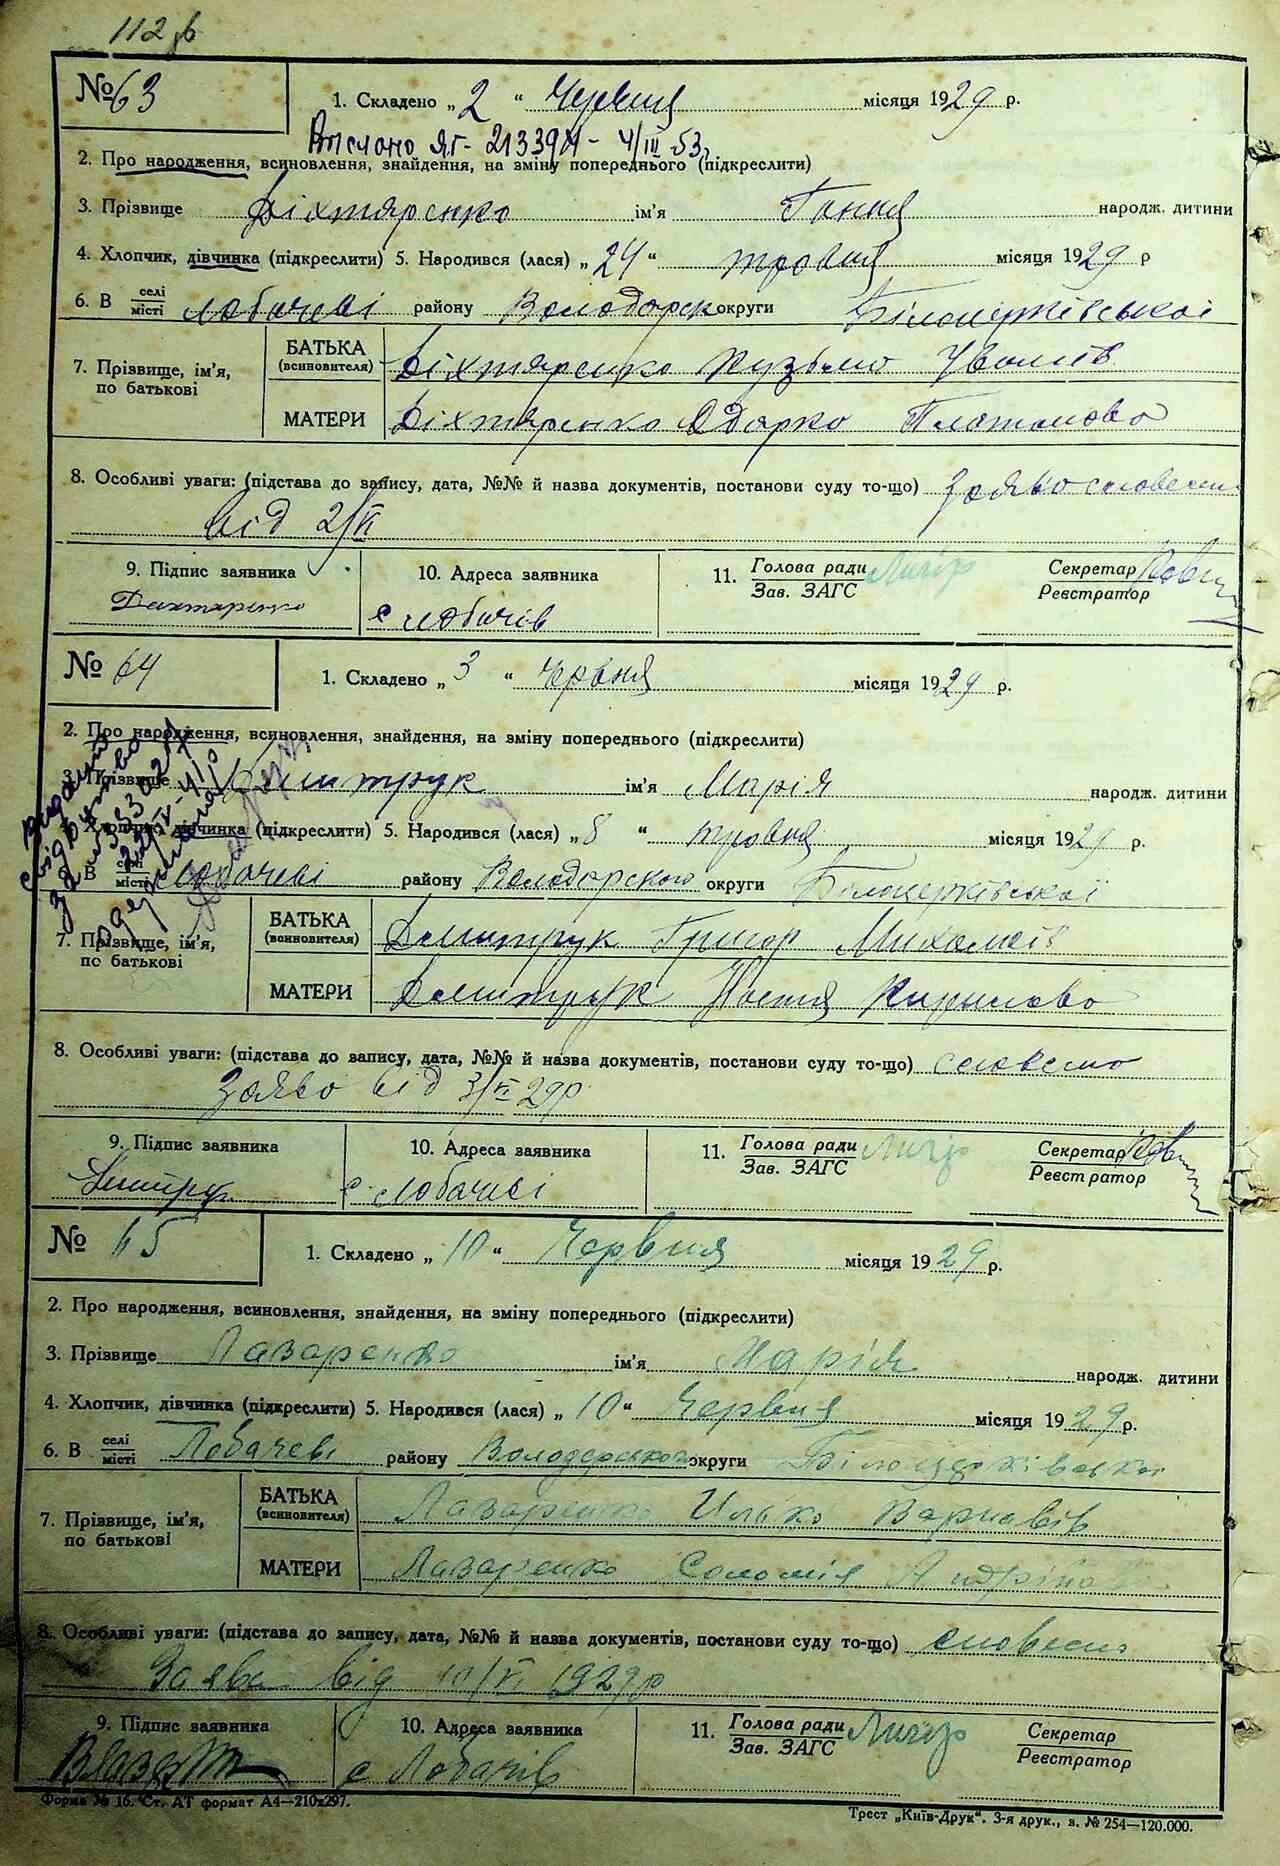 112
№ 63
1. Складено „ 2 “ Червня місяця 1929 р.
Вислано ЯГ- 213391 - 4/III 53.
2. Про народження, всиновлення, знайдення, на зміну попереднього (підкреслити)
3. Прізвище Діхтяренко ім'я Ганна народж. дитини
4. Хлопчик, дівчинка (підкреслити) 5. Народився (лася) „ 24 “ травня місяця 1929 р
6. В селі/місті Лобачеві району Володарск округи Білоцерківської
7. Прізвище, ім'я, по батькові
БАТЬКА (всиновителя) Діхтяренко Кузьма
МАТЕРИ Діхтяренко Одарка Платонова
8. Особливі уваги: (підстава до запису, дата, №№ й назва документів, постанови суду то-що) заява словесна
від 2/VI
9. Підпис заявника 10. Адреса заявника 11. Голова ради / Зав. ЗАГС Секретар / Реєстратор
Діхтяренко с Лобачів
№ 64
1. Складено „ 3 “ Червня місяця 1929 р.
2. Про народження, всиновлення, знайдення, на зміну попереднього (підкреслити)
3. Прізвище Дмитрук ім'я Марія народж. дитини
Хлопчик, дівчинка (підкреслити) 5. Народився (лася) „ 8 “ травня місяця 1929 р.
В селі/місті Лобачеві району Володарского округи Білоцерківської
7. Прізвище, ім'я, по батькові
БАТЬКА (всиновителя) Дмитрук Григор Михайлів
МАТЕРИ Дмитрук Настя Кирилова
8. Особливі уваги: (підстава до запису, дата, №№ й назва документів, постанови суду то-що) словесно
заява від 3/VI 29р
9. Підпис заявника 10. Адреса заявника 11. Голова ради / Зав. ЗАГС Секретар / Реєстратор
с Лобачеві
№ 65
1. Складено „ 10 “ Червня місяця 1929 р.
2. Про народження, всиновлення, знайдення, на зміну попереднього (підкреслити)
3. Прізвище Лазаренко ім'я Марія народж. дитини
4. Хлопчик, дівчинка (підкреслити) 5. Народився (лася) „ 10 “ Червня місяця 1929 р.
6. В селі/місті Лобачеві району Володарського округи Білоцерківської
7. Прізвище, ім'я, по батькові
БАТЬКА (всиновителя) Лазаренко Илько Варнавів
МАТЕРИ Лазаренко Соломія
8. Особливі уваги: (підстава до запису, дата, №№ й назва документів, постанови суду то-що) словесна
Заява від 10/VI 1929р
9. Підпис заявника 10. Адреса заявника 11. Голова ради / Зав. ЗАГС Секретар / Реєстратор
с Лобачів
Форма № 16. Ст. АТ формат А4—210х297.
Трест „Київ-Друк“. 3-я друк., з. № 254—120.000.